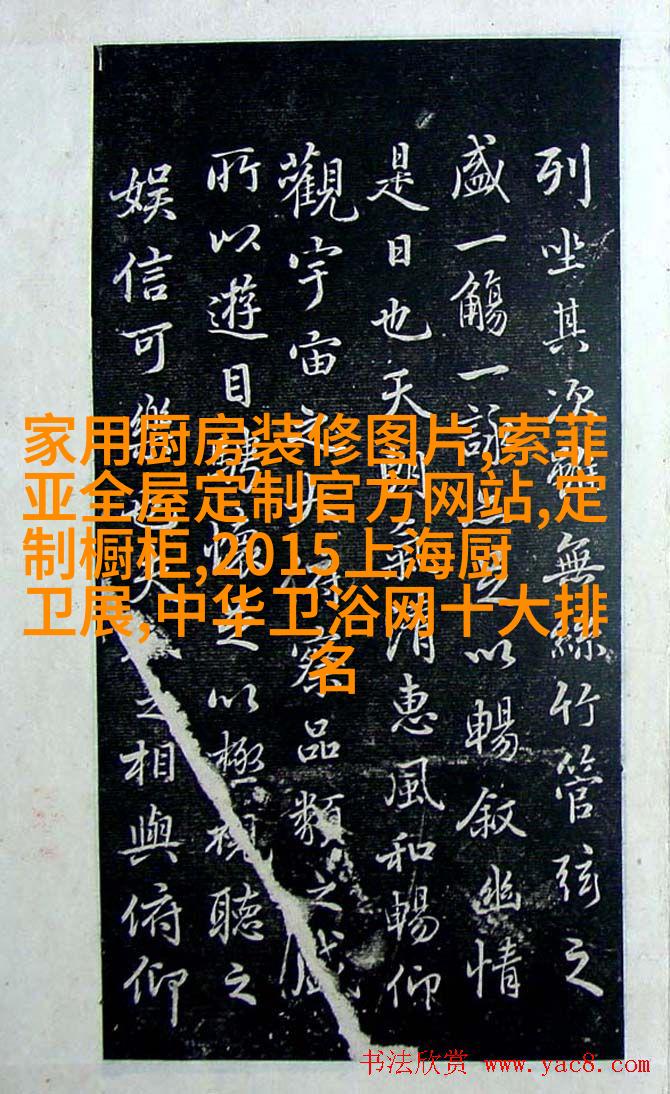 列坐其次雖無絲竹管弦之
盛一觴一詠亦足以暢叙幽情
是日也天朗氣清惠風和暢仰
觀宇宙之大俯察品類之盛
所以遊目騁懷足以極視聽之
娛信可樂也夫之相與俯仰
家用厨房装修图片,索菲
亚全屋定制官方网站,定
制橱柜,2015上海厨
卫展,中华卫浴网十大排
名
书法欣赏 www.yac8.com